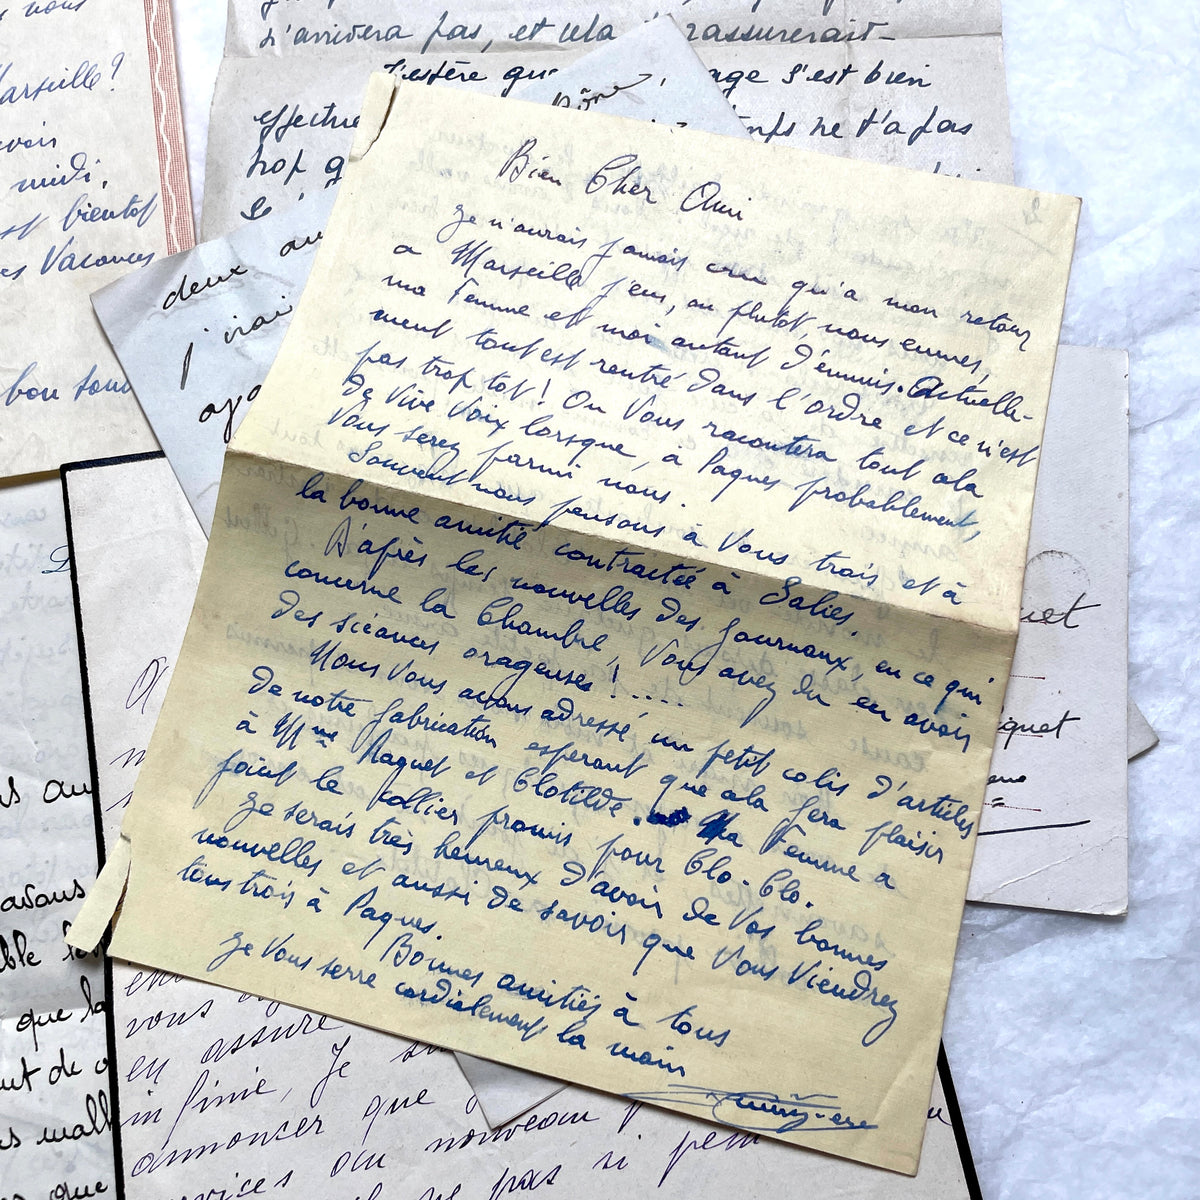 s nous
Marseille ?
avoir
midi,
est bientot
es Vacances
bon
n'arrivera pas, et cela rassurerait
J'espère que age s'est bien
effectué temps ne t'a pas
trop
deux
j'irai
Bien Cher Ami
Je n'aurais jamais cru qu'a mon retour
a Marseille j'eus, ou plutot nous eumes,
ma Femme et moi autant d'ennuis. Actuelle-
ment tout est rentré dans l'ordre et ce n'est
pas trop tot ! On Vous racontera tout cela
de Vive Voix lorsque, à Paques probablement,
Vous serez parmi nous.
Souvent nous pensons à Vous trois et à
la bonne amitié contractée à Salies.
D'après les nouvelles des journaux, en ce qui
concerne la Chambre, Vous avez du en avoir
des séances orageuses !....
Nous Vous avons adressé, un petit colis d'articles
de notre fabrication esperant que cela fera plaisir
à Mme Paquet et Clotilde. Ma Femme a
joint le collier promis pour Clo-Clo.
Je serais très heureux d'avoir de Vos bonnes
nouvelles et aussi de savoir que Vous Viendrez
tous trois à Paques.
Bonnes amitiés à tous
Je Vous serre cordialement la main
uet
quet
avons
que la
ut de
que
vous
en assure
infinie, Je
annoncer que
services au nouveau
pas si peu